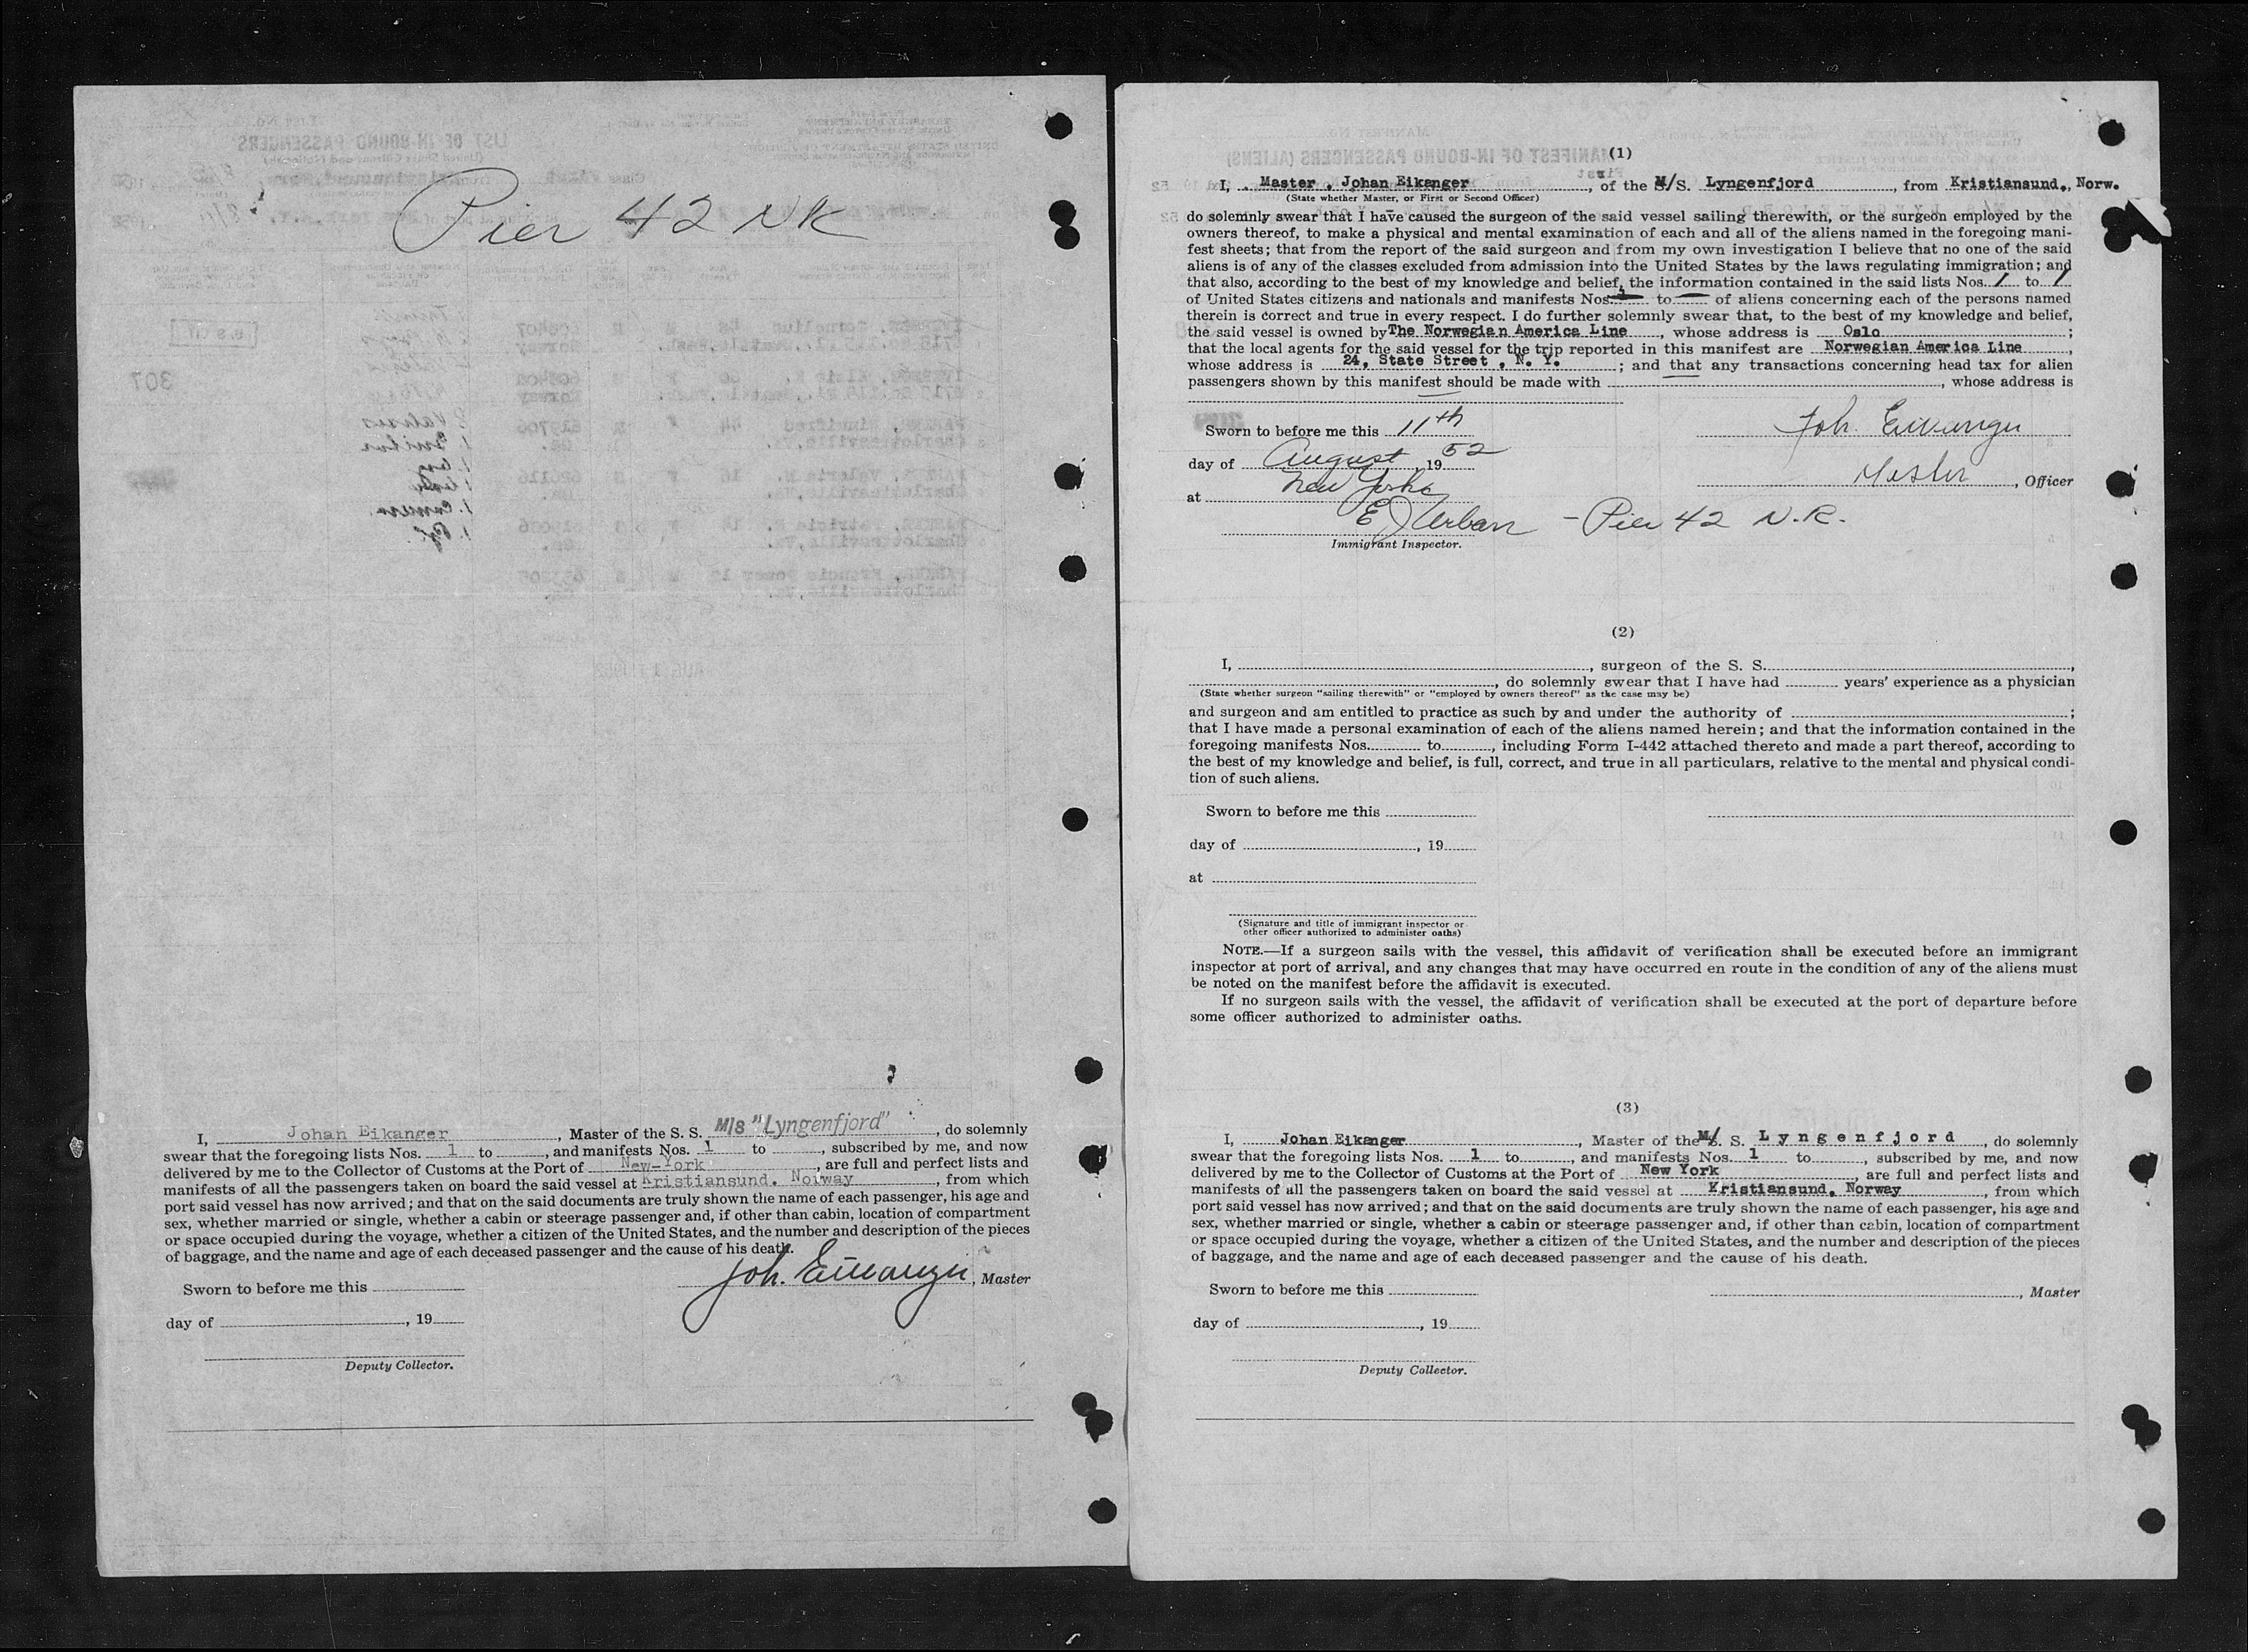 Pier 42 NR
I, Johan Eikanger, Master of the S. S. M/S "Lyngenfjord", do solemnly
swear that the foregoing lists Nos. 1 to , and manifests Nos. 1 to , subscribed by me, and now
delivered by me to the Collector of Customs at the Port of New-York, are full and perfect lists and
manifests of all the passengers taken on board the said vessel at Kristiansund. Norway, from which
port said vessel has now arrived; and that on the said documents are truly shown the name of each passenger, his age and
sex, whether married or single, whether a cabin or steerage passenger and, if other than cabin, location of compartment
or space occupied during the voyage, whether a citizen of the United States, and the number and description of the pieces
of baggage, and the name and age of each deceased passenger and the cause of his death.
Joh. Eikanger, Master
Sworn to before me this
day of , 19
Deputy Collector.
(1)
I, Master . Johan Eikanger, of the M/S. Lyngenfjord, from Kristiansund., Norw.
(State whether Master, or First or Second Officer)
do solemnly swear that I have caused the surgeon of the said vessel sailing therewith, or the surgeon employed by the
owners thereof, to make a physical and mental examination of each and all of the aliens named in the foregoing mani-
fest sheets; that from the report of the said surgeon and from my own investigation I believe that no one of the said
aliens is of any of the classes excluded from admission into the United States by the laws regulating immigration; and
that also, according to the best of my knowledge and belief, the information contained in the said lists Nos. 1 to 1
of United States citizens and nationals and manifests Nos. to of aliens concerning each of the persons named
therein is correct and true in every respect. I do further solemnly swear that, to the best of my knowledge and belief,
the said vessel is owned by The Norwegian America Line, whose address is Oslo;
that the local agents for the said vessel for the trip reported in this manifest are Norwegian America Line,
whose address is 24, State Street , N. Y.; and that any transactions concerning head tax for alien
passengers shown by this manifest should be made with , whose address is
Sworn to before me this 11th
Joh. Eikanger
day of August 1952
Master, Officer
at New York
E J Urban - Pier 42 N.R.
Immigrant Inspector.
(2)
I, , surgeon of the S. S. ,
, do solemnly swear that I have had years' experience as a physician
(State whether surgeon "sailing therewith" or "employed by owners thereof" as the case may be)
and surgeon and am entitled to practice as such by and under the authority of ;
that I have made a personal examination of each of the aliens named herein; and that the information contained in the
foregoing manifests Nos. to , including Form I-442 attached thereto and made a part thereof, according to
the best of my knowledge and belief, is full, correct, and true in all particulars, relative to the mental and physical condi-
tion of such aliens.
Sworn to before me this
day of , 19
at
(Signature and title of immigrant inspector or
other officer authorized to administer oaths)
NOTE.—If a surgeon sails with the vessel, this affidavit of verification shall be executed before an immigrant
inspector at port of arrival, and any changes that may have occurred en route in the condition of any of the aliens must
be noted on the manifest before the affidavit is executed.
If no surgeon sails with the vessel, the affidavit of verification shall be executed at the port of departure before
some officer authorized to administer oaths.
(3)
I, Johan Eikanger, Master of the M/S. Lyngenfjord, do solemnly
swear that the foregoing lists Nos. 1 to , and manifests Nos. 1 to , subscribed by me, and now
delivered by me to the Collector of Customs at the Port of New York, are full and perfect lists and
manifests of all the passengers taken on board the said vessel at Kristiansund. Norway, from which
port said vessel has now arrived; and that on the said documents are truly shown the name of each passenger, his age and
sex, whether married or single, whether a cabin or steerage passenger and, if other than cabin, location of compartment
or space occupied during the voyage, whether a citizen of the United States, and the number and description of the pieces
of baggage, and the name and age of each deceased passenger and the cause of his death.
Sworn to before me this
, Master
day of , 19
Deputy Collector.